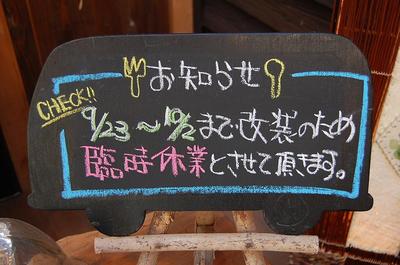 お知らせ
CHECK!!
9/23〜10/2まで改装のため
臨時休業とさせて頂きます。